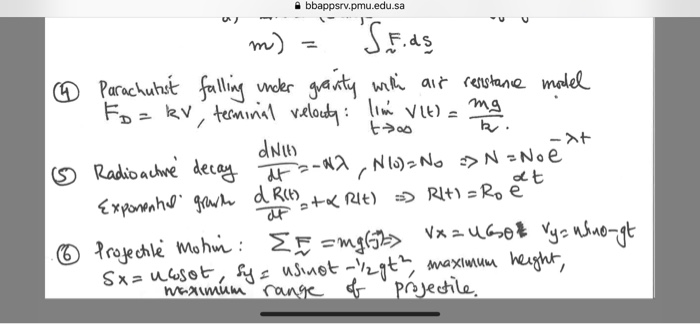 bbappsrv.pmu.edu.sa
m) = ∫ F.ds
④ Parachutist falling under gravity with air resistance model
F_D = kv, terminal velocity: lim t→∞ V(t) = mg/k.
⑤ Radioactive decay dN(t)/dt = -Nλ, N(0)=N₀ ⇒ N = N₀e^-λt
Exponential growth dR(t)/dt = +α R(t) ⇒ R(t) = R₀ e^αt
⑥ Projectile Motion: ΣF = mg(-j) ⇒ Vx = ucosθ Vy = usinθ-gt
Sx = ucosθt, Sy = usinθt -1/2gt², maximum height,
maximum range of projectile.